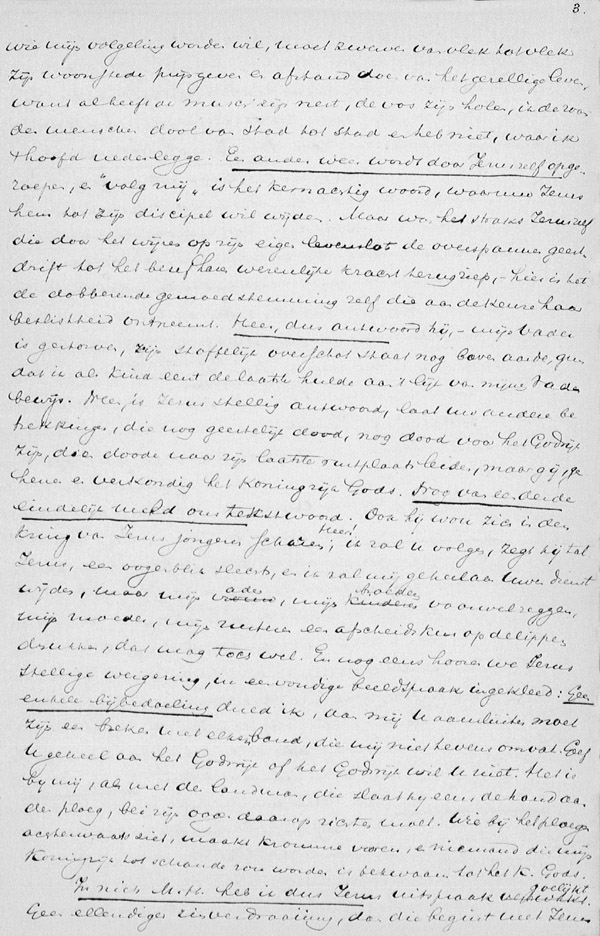 3.
wie mijn volgeling worden wil, moet zwerven van vlek tot vlek
zijn woonstede prijsgeven en afstand doen van het gezellige leven,
want al heeft de musch zijn nest, de vos zijn holen, ik de zoon
des menschen dool van stad tot stad en heb niet, waar ik
't hoofd nederlegge. Een ander weer wordt door Jezus zelf opge-
roepen, en "volg mij" is het kernachtig woord, waarmee Jezus
hem tot zijn discipel wil wijden. Maar was het straks Jezus zelf
die door het wijzen op zijn eigen levenslot de overspannen geest-
drift tot het bewustzijn werkelijke kracht terugriep, - hier is het
de dobberende gemoedsstemming zelf die aan de keuze haar
beslistheid ontneemt. Heer, dus antwoord hij, - mijn vader
is gestorven, zijn stoffelijk overschot staat nog boven aarde, gun
dat ik als kind eerst de laatste hulde aan 't lijk van mijn Vader
bewijs. Neen, is Jezus stellig antwoord, laat uw andere be
trekkingen, die nog geestelijk dood, nog dood voor het Godsrijk
zijn, die doode naar zijn laatste rustplaats leiden, maar gij, ga
henen en verkondig het Koningrijk Gods. Nog van een derde
eindelijk meld ons tekstwoord. Ook hij wou zich in den
kring van Jezus jongeren scharen, Heer, ik zal u volgen, zegt hij tot
Jezus, een oogenblik slechts, en ik zal mij geheel aan Uwen dienst
wijden, maar mijn vader, mijn broeders vaarwel zeggen,
mijn moeder, mijn zusteren een afscheidskus op de lippen
drukken, dat mag toch wel. En nog eens hooren we Jezus
stellige weigering, in eenvoudige beeldspraak ingekleed: Geen
enkele bijbedoeling duld ik, aan mij U aansluiten moet
zijn een breken met elken band, die mij niet tevens omvat. Geef
U geheel aan het Godsrijk of het Godsrijk wil U niet. Het is
bij mij, als met de landman, die slaat hij eens de hand aan
de ploeg, bei zijn oogen daarop richten moet. Wie bij het ploegen
achterwaarts ziet, maakt kromme voren, en niemand die mijn
Koningrijk tot schande zou worden is bekwaam tot het K. Gods.
In nich M. H. heb ik dus Jezus uitspraak
Geen ellendiger zinsverdraaiing, dan die begint met Jezus